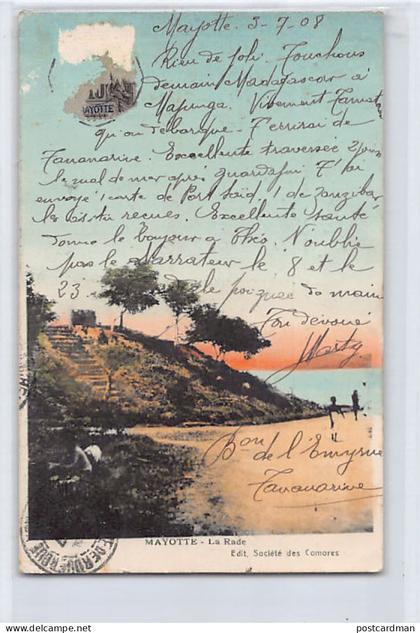 Mayotte 3-7-08
Rien de joli. Touchons
demain Madagascar à
Majunga. Vivement Tamat
qu'on débarque - T'écrirai de
Tananarive. Excellente traversée
le mal de mer après Guardafui T'ai
envoyé 1 carte de Port Saïd 1 de Zanzibar
les as-tu reçues. Excellente santé
donne le bonjour à Théo. N'oublie
pas le Narrateur le 8 et le
23
poignée de main
Ton dévoué
MAYOTTE
Bon de l'Emyrne
Tananarive
MAYOTTE - La Rade
Edit. Société des Comores
© postcardman
postcardman.com